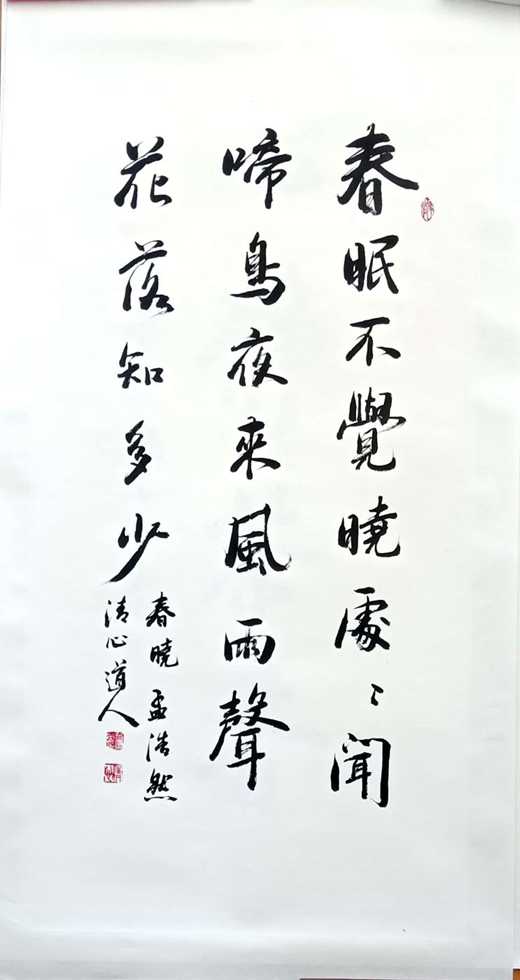 春眠不覺曉處〻聞
啼鳥夜來風雨聲
花落知多少
春曉孟浩然
清心道人